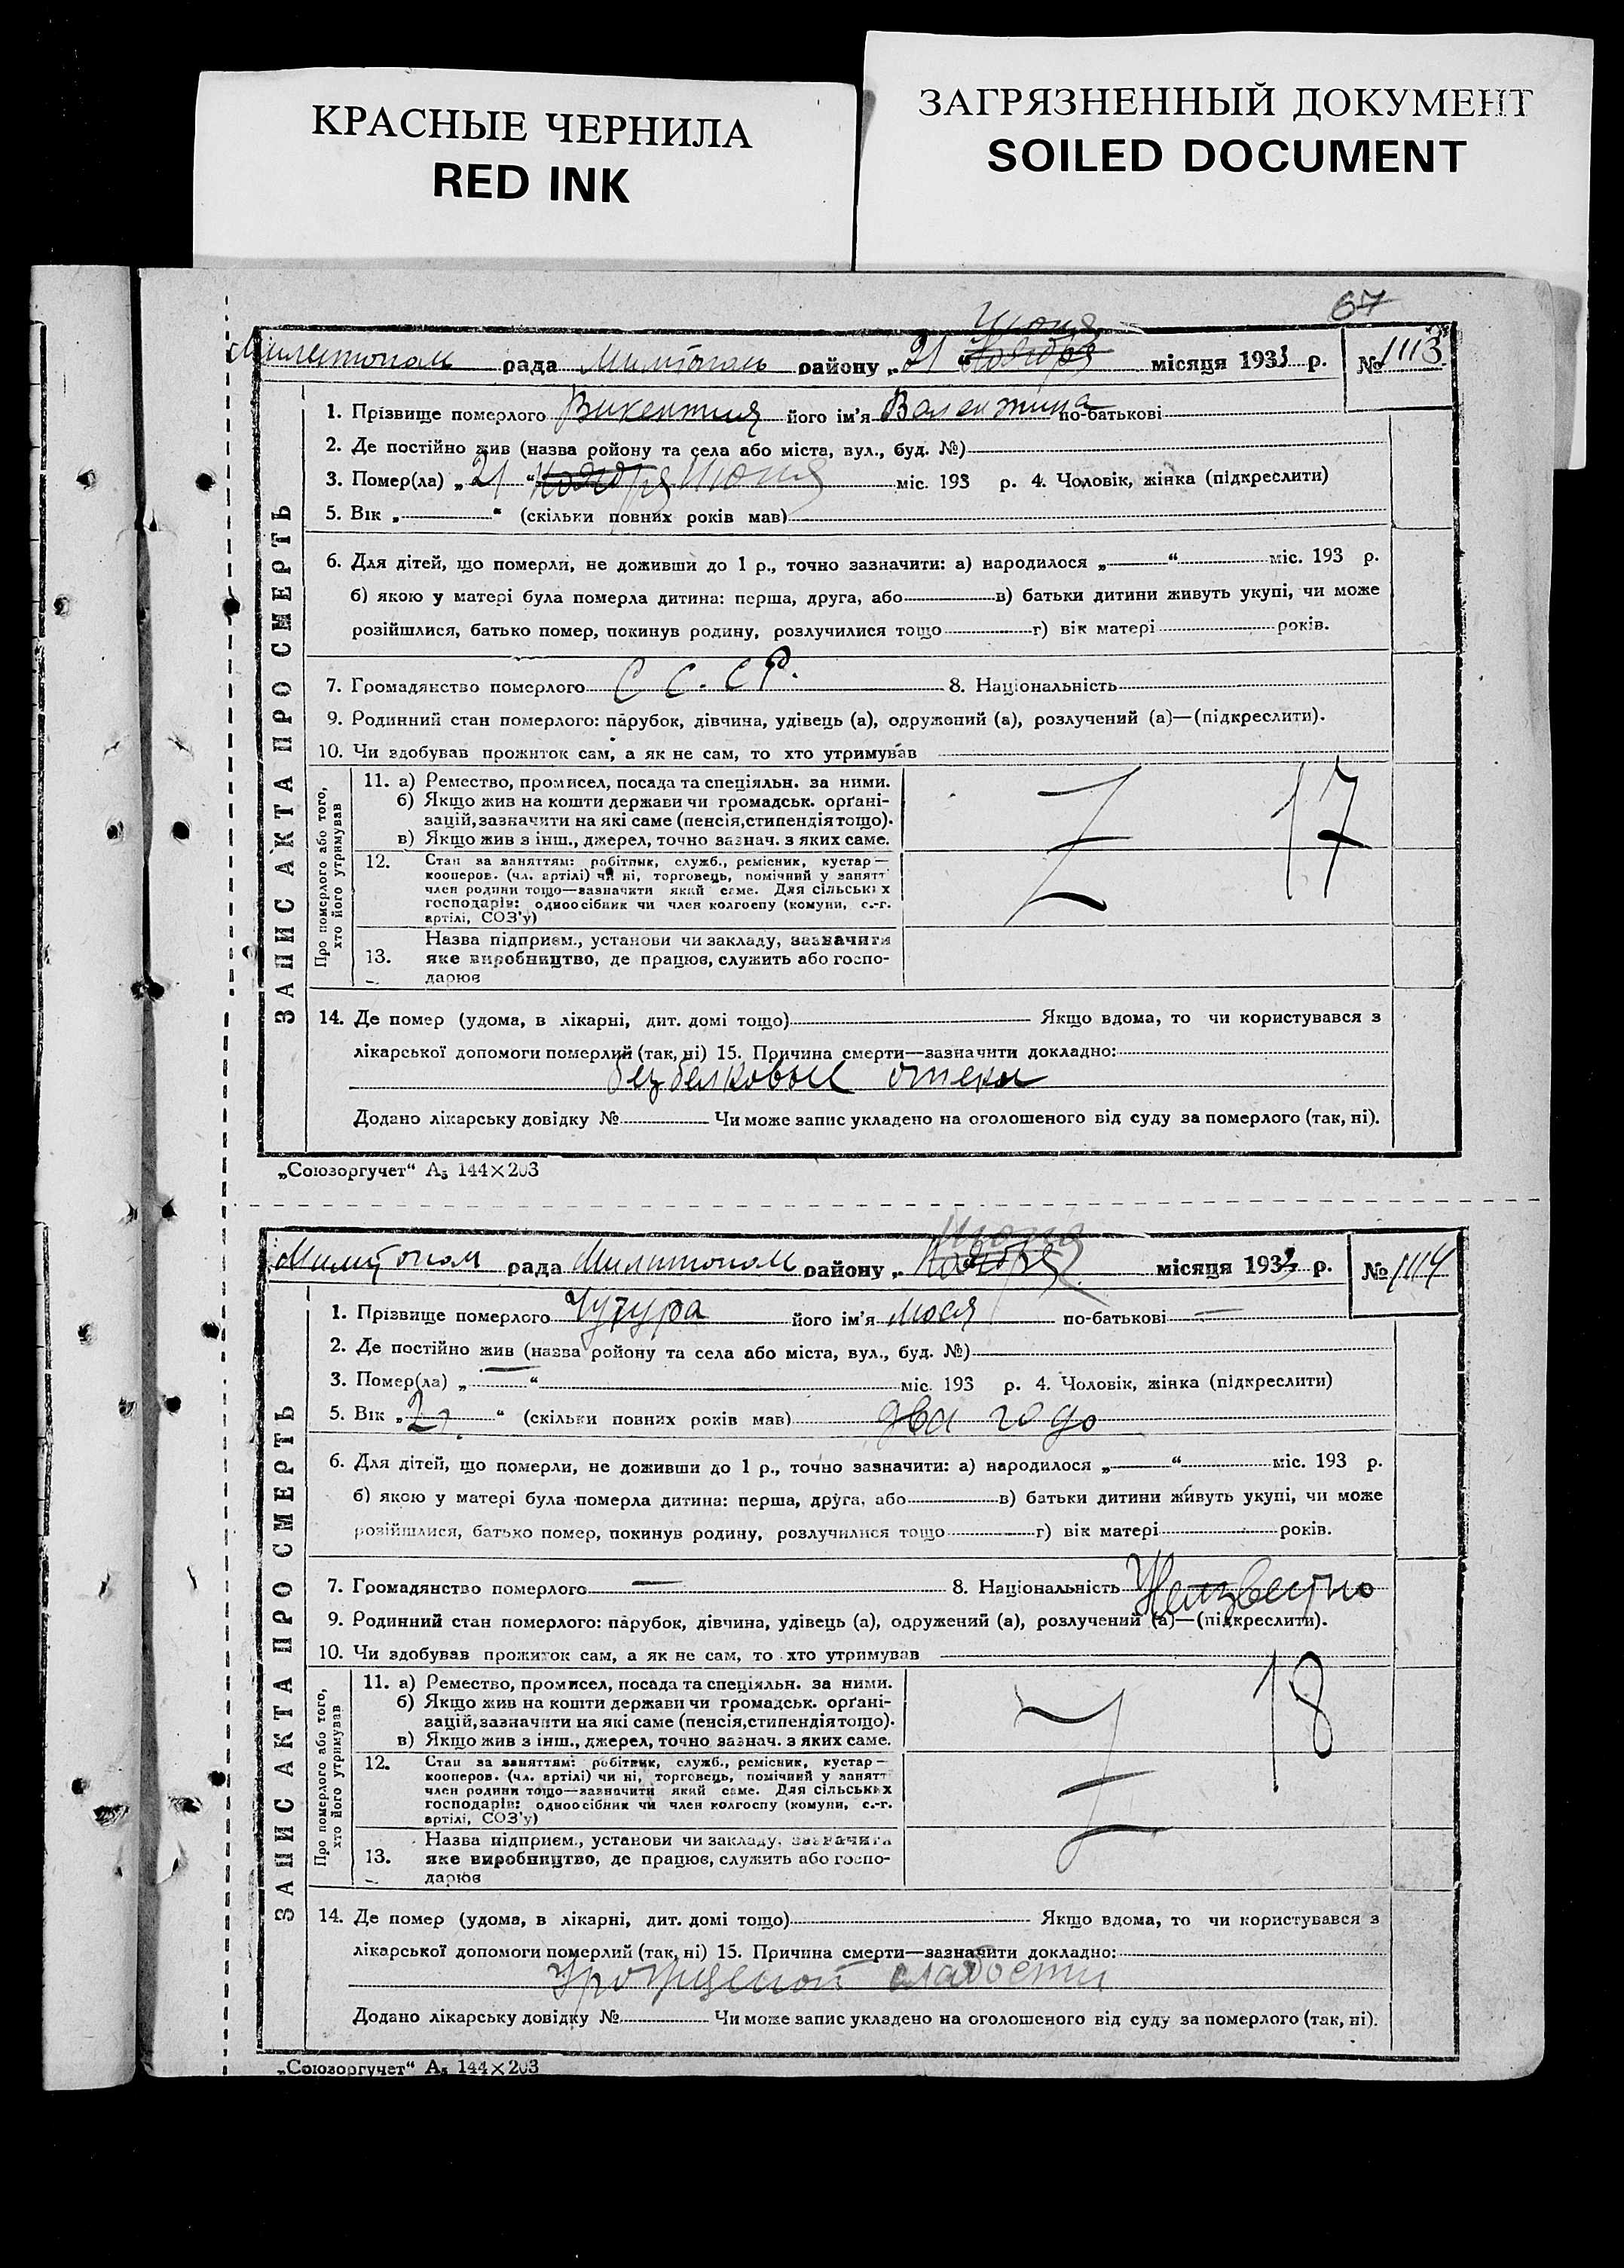 КРАСНЫЕ ЧЕРНИЛА
RED INK
ЗАГРЯЗНЕННЫЙ ДОКУМЕНТ
SOILED DOCUMENT
67
Июня
рада району „21 “ Ноября місяця 1933 р. № 1113
ЗАПИС АКТА ПРО СМЕРТЬ
1. Прізвище померлого Викентия його ім'я Валентина по-батькові
2. Де постійно жив (назва ройону та села або міста, вул., буд. №)
3. Помер(ла) „21 “ Ноября Июня міс. 193 р. 4. Чоловік, жінка (підкреслити)
5. Вік „ “ (скільки повних років мав)
6. Для дітей, що померли, не доживши до 1 р., точно зазначити: а) народилося „ “ міс. 193 р.
б) якою у матері була померла дитина: перша, друга, або в) батьки дитини живуть укупі, чи може
розійшлися, батько помер, покинув родину, розлучилися тощо г) вік матері років.
7. Громадянство померлого С С. С Р. 8. Національність
9. Родинний стан померлого: парубок, дівчина, удівець (а), одружений (а), розлучений (а)—(підкреслити).
10. Чи здобував прожиток сам, а як не сам, то хто утримував
Про померлого або того,
хто його утримував
11. а) Ремество, промисел, посада та спеціяльн. за ними.
б) Якщо жив на кошти держави чи громадськ. орґані-
зацій, зазначити на які саме (пенсія, стипендія тощо).
в) Якщо жив з інш., джерел, точно зазнач. з яких саме.
17
12. Стан за заняттям: робітник, служб., ремісник, кустар—
кооперов. (чл. артілі) чи ні, торговець, помічний у занятт
член родини тощо—зазначити який саме. Для сільських
господарів: одноосібник чи член колгоспу (комуни, с.-г.
артілі, СОЗ'у)
13. Назва підприєм., установи чи закладу, зазначити
яке виробництво, де працює, служить або госпо-
дарює
14. Де помер (удома, в лікарні, дит. домі тощо) Якщо вдома, то чи користувався з
лікарської допомоги померлий (так, ні) 15. Причина смерти—зазначити докладно:
безбелковые отеки
Додано лікарську довідку № Чи може запис укладено на оголошеного від суду за померлого (так, ні).
„Союзоргучет“ А₅ 144×203
Июня
рада Милитопол району „ Ноября місяця 1933 р. № 1114
ЗАПИС АКТА ПРО СМЕРТЬ
1. Прізвище померлого його ім'я Люся по-батькові —
2. Де постійно жив (назва ройону та села або міста, вул., буд. №)
3. Помер(ла) „ — “ міс. 193 р. 4. Чоловік, жінка (підкреслити)
5. Вік „2 г. “ (скільки повних років мав) два годо
6. Для дітей, що померли, не доживши до 1 р., точно зазначити: а) народилося „ “ міс. 193 р.
б) якою у матері була померла дитина: перша, друга, або в) батьки дитини живуть укупі, чи може
розійшлися, батько помер, покинув родину, розлучилися тощо г) вік матері років.
7. Громадянство померлого — 8. Національність Неизвестно
9. Родинний стан померлого: парубок, дівчина, удівець (а), одружений (а), розлучений (а)—(підкреслити).
10. Чи здобував прожиток сам, а як не сам, то хто утримував
Про померлого або того,
хто його утримував
11. а) Ремество, промисел, посада та спеціяльн. за ними.
б) Якщо жив на кошти держави чи громадськ. орґані-
зацій, зазначити на які саме (пенсія, стипендія тощо).
в) Якщо жив з інш., джерел, точно зазнач. з яких саме.
18
12. Стан за заняттям: робітник, служб., ремісник, кустар—
кооперов. (чл. артілі) чи ні, торговець, помічний у занятт
член родини тощо—зазначити який саме. Для сільських
господарів: одноосібник чи член колгоспу (комуни, с.-г.
артілі, СОЗ'у)
13. Назва підприєм., установи чи закладу, зазначити
яке виробництво, де працює, служить або госпо-
дарює
14. Де помер (удома, в лікарні, дит. домі тощо) Якщо вдома, то чи користувався з
лікарської допомоги померлий (так, ні) 15. Причина смерти—зазначити докладно:
слабости
Додано лікарську довідку № Чи може запис укладено на оголошеного від суду за померлого (так, ні).
„Союзоргучет“ А₅ 144×203